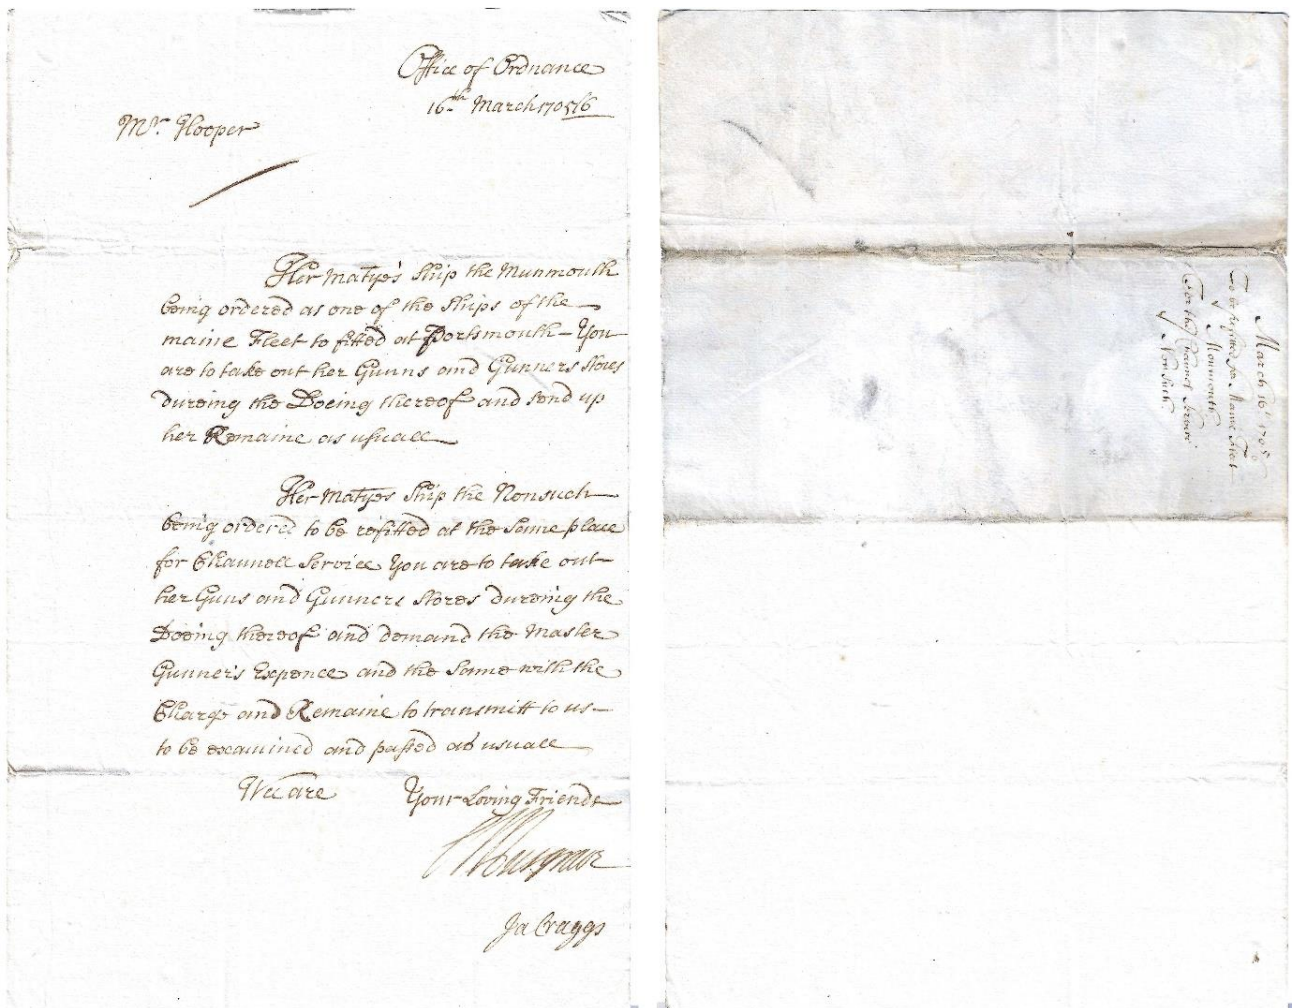 Office of Ordnance
16th March 1705/6
Mr. Hooper
Her Matyes Ship the Munmouth
being ordered as one of the Ships of the
maine Fleet to fitted at Portsmouth - You
are to take out her Gunns and Gunners Stores
dureing the Doeing thereof and send up
her Remaine as usuall
Her Matyes Ship the Nonsuch
being ordered to be refitted at the same place
for Channell Service You are to take out
her Guns and Gunners Stores dureing the
Doeing thereof and demand the Master
Gunner's Expence and the same with the
Charge and Remaine to transmitt to us
to be examined and passed as usuall
Wee are Your Loving Friends
C Musgrave
Ja Craggs
March 16t 1705/6
To be refitted for Maine Fleet
Monmouth
For the Channel Service
Nonsuch